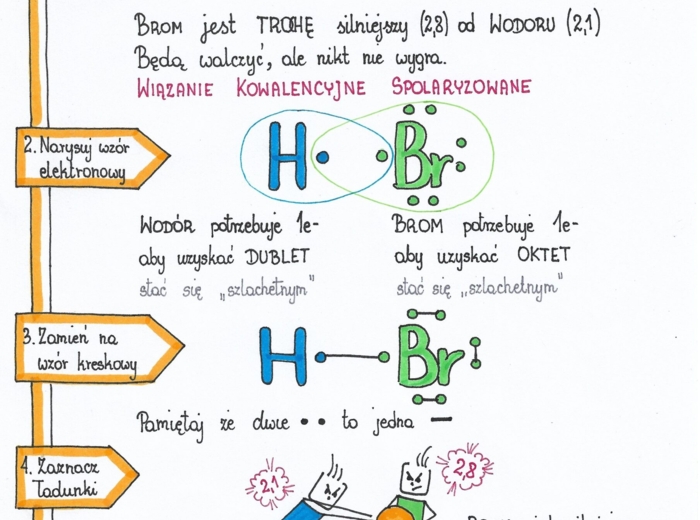 BROM jest TROHĘ silniejszy (2,8) od WODORU (2,1)
Będą walczyć, ale nikt nie wygra.
WIĄZANIE KOWALENCYJNE SPOLARYZOWANE
2. Narysuj wzór
elektronowy
H Br
WODÓR potrzebuje 1e-
aby uzyskać DUBLET
stać się „szlachetnym"
BROM potrzebuje 1e-
aby uzyskać OKTET
stać się „szlachetnym"
3. Zamień na
wzór kreskowy
H Br
Pamiętaj że dwie •• to jedna —
4. Zaznacz
Ładunki
2,1
2,8